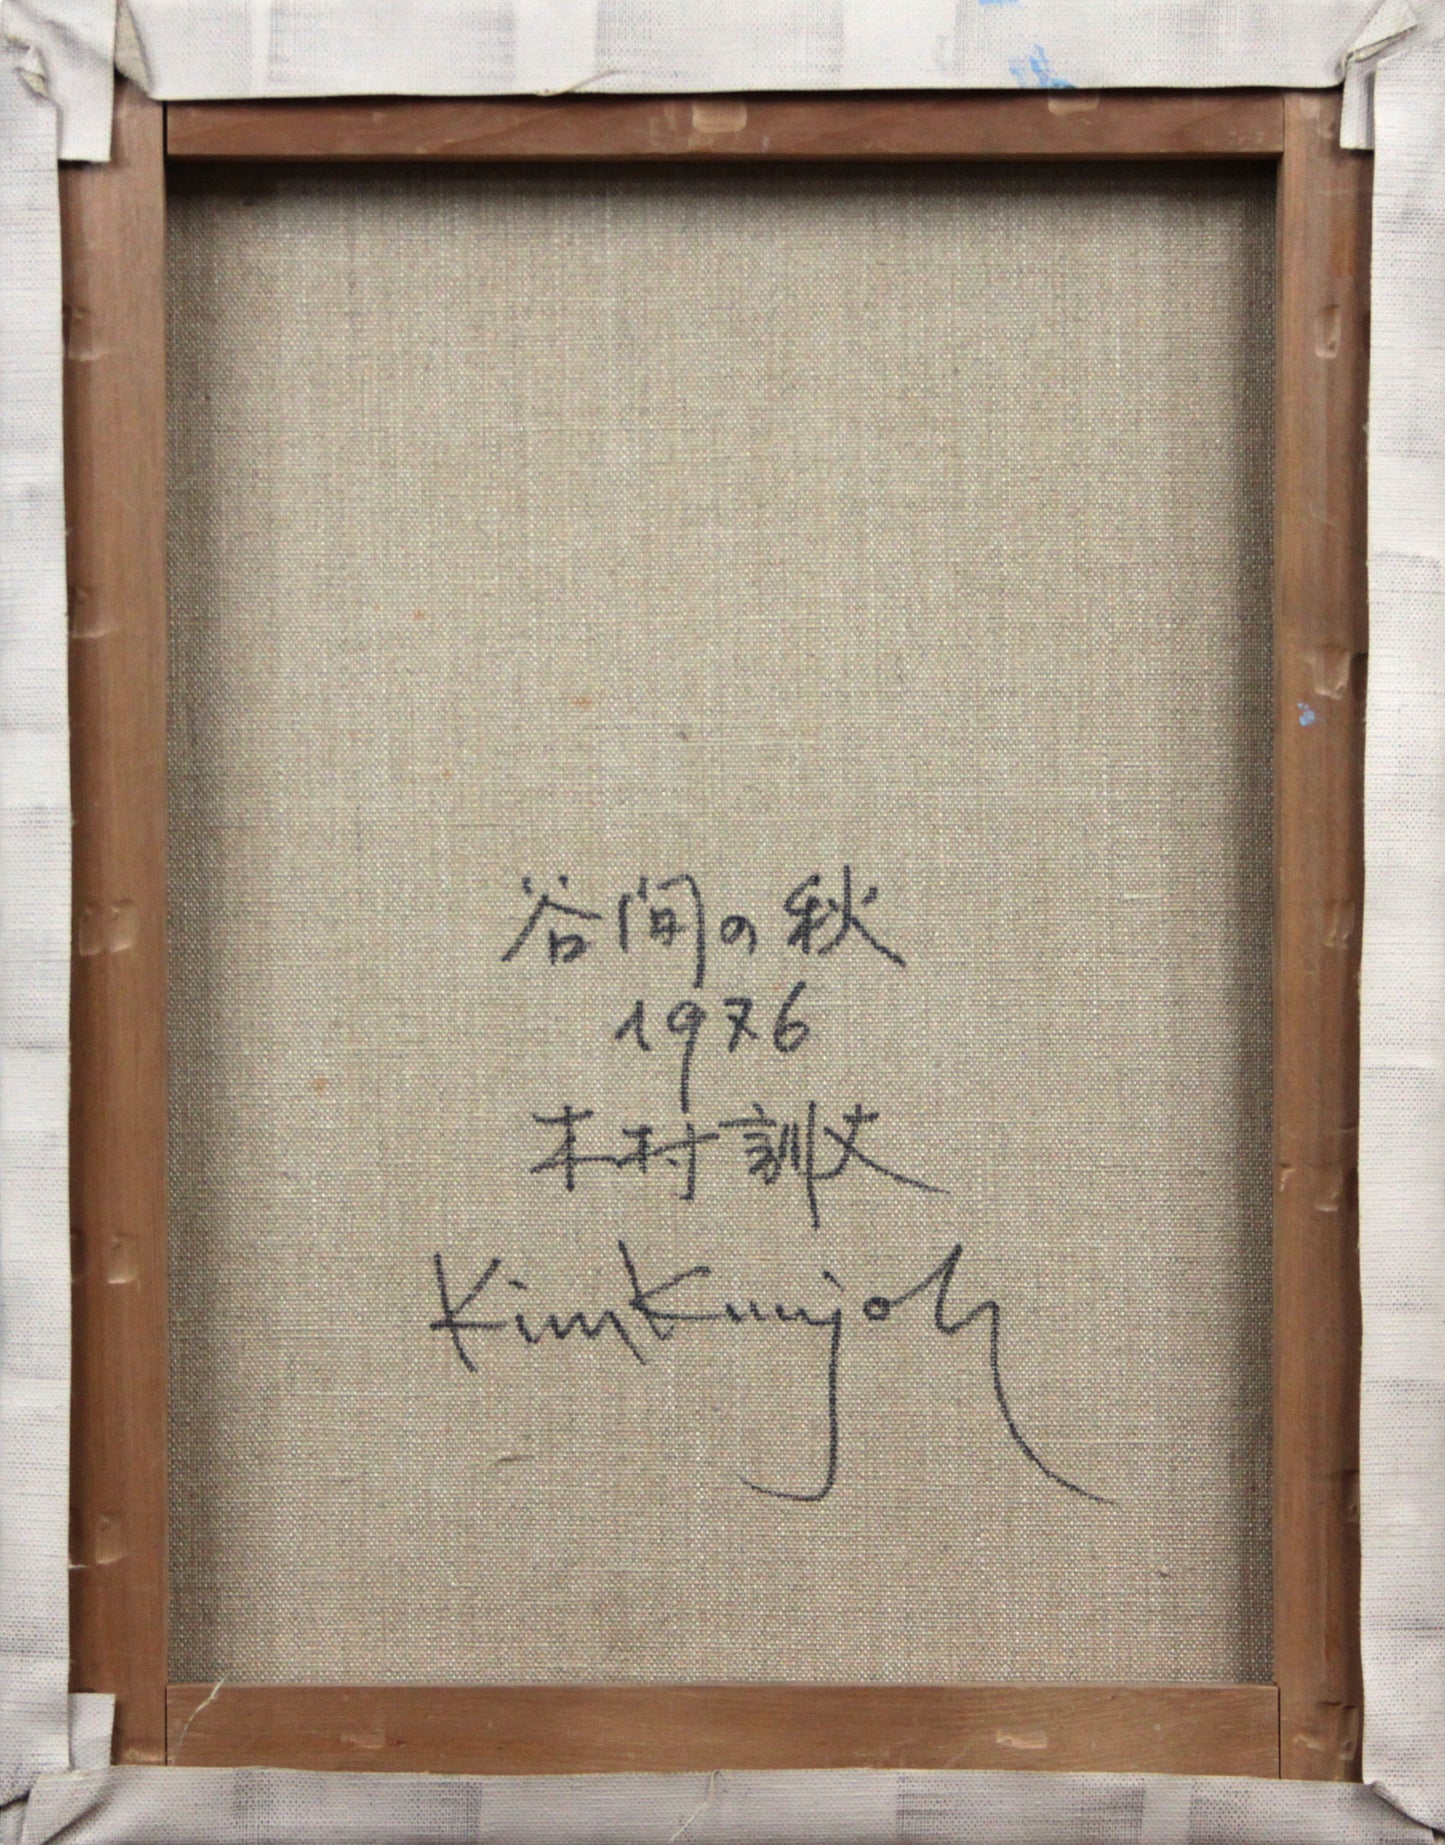 谷間の秋
1976
木村訓丈
KimKunjoh